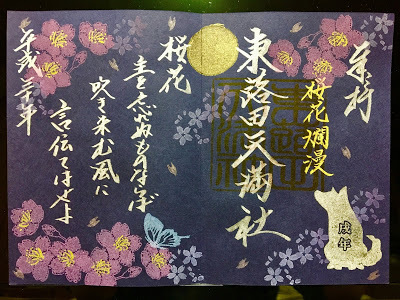 奉拝
桜花爛漫
東蕗田天満社
戌年
桜花
主を忘れぬものならば
吹き来む風に
言伝てはせよ
平成三十年